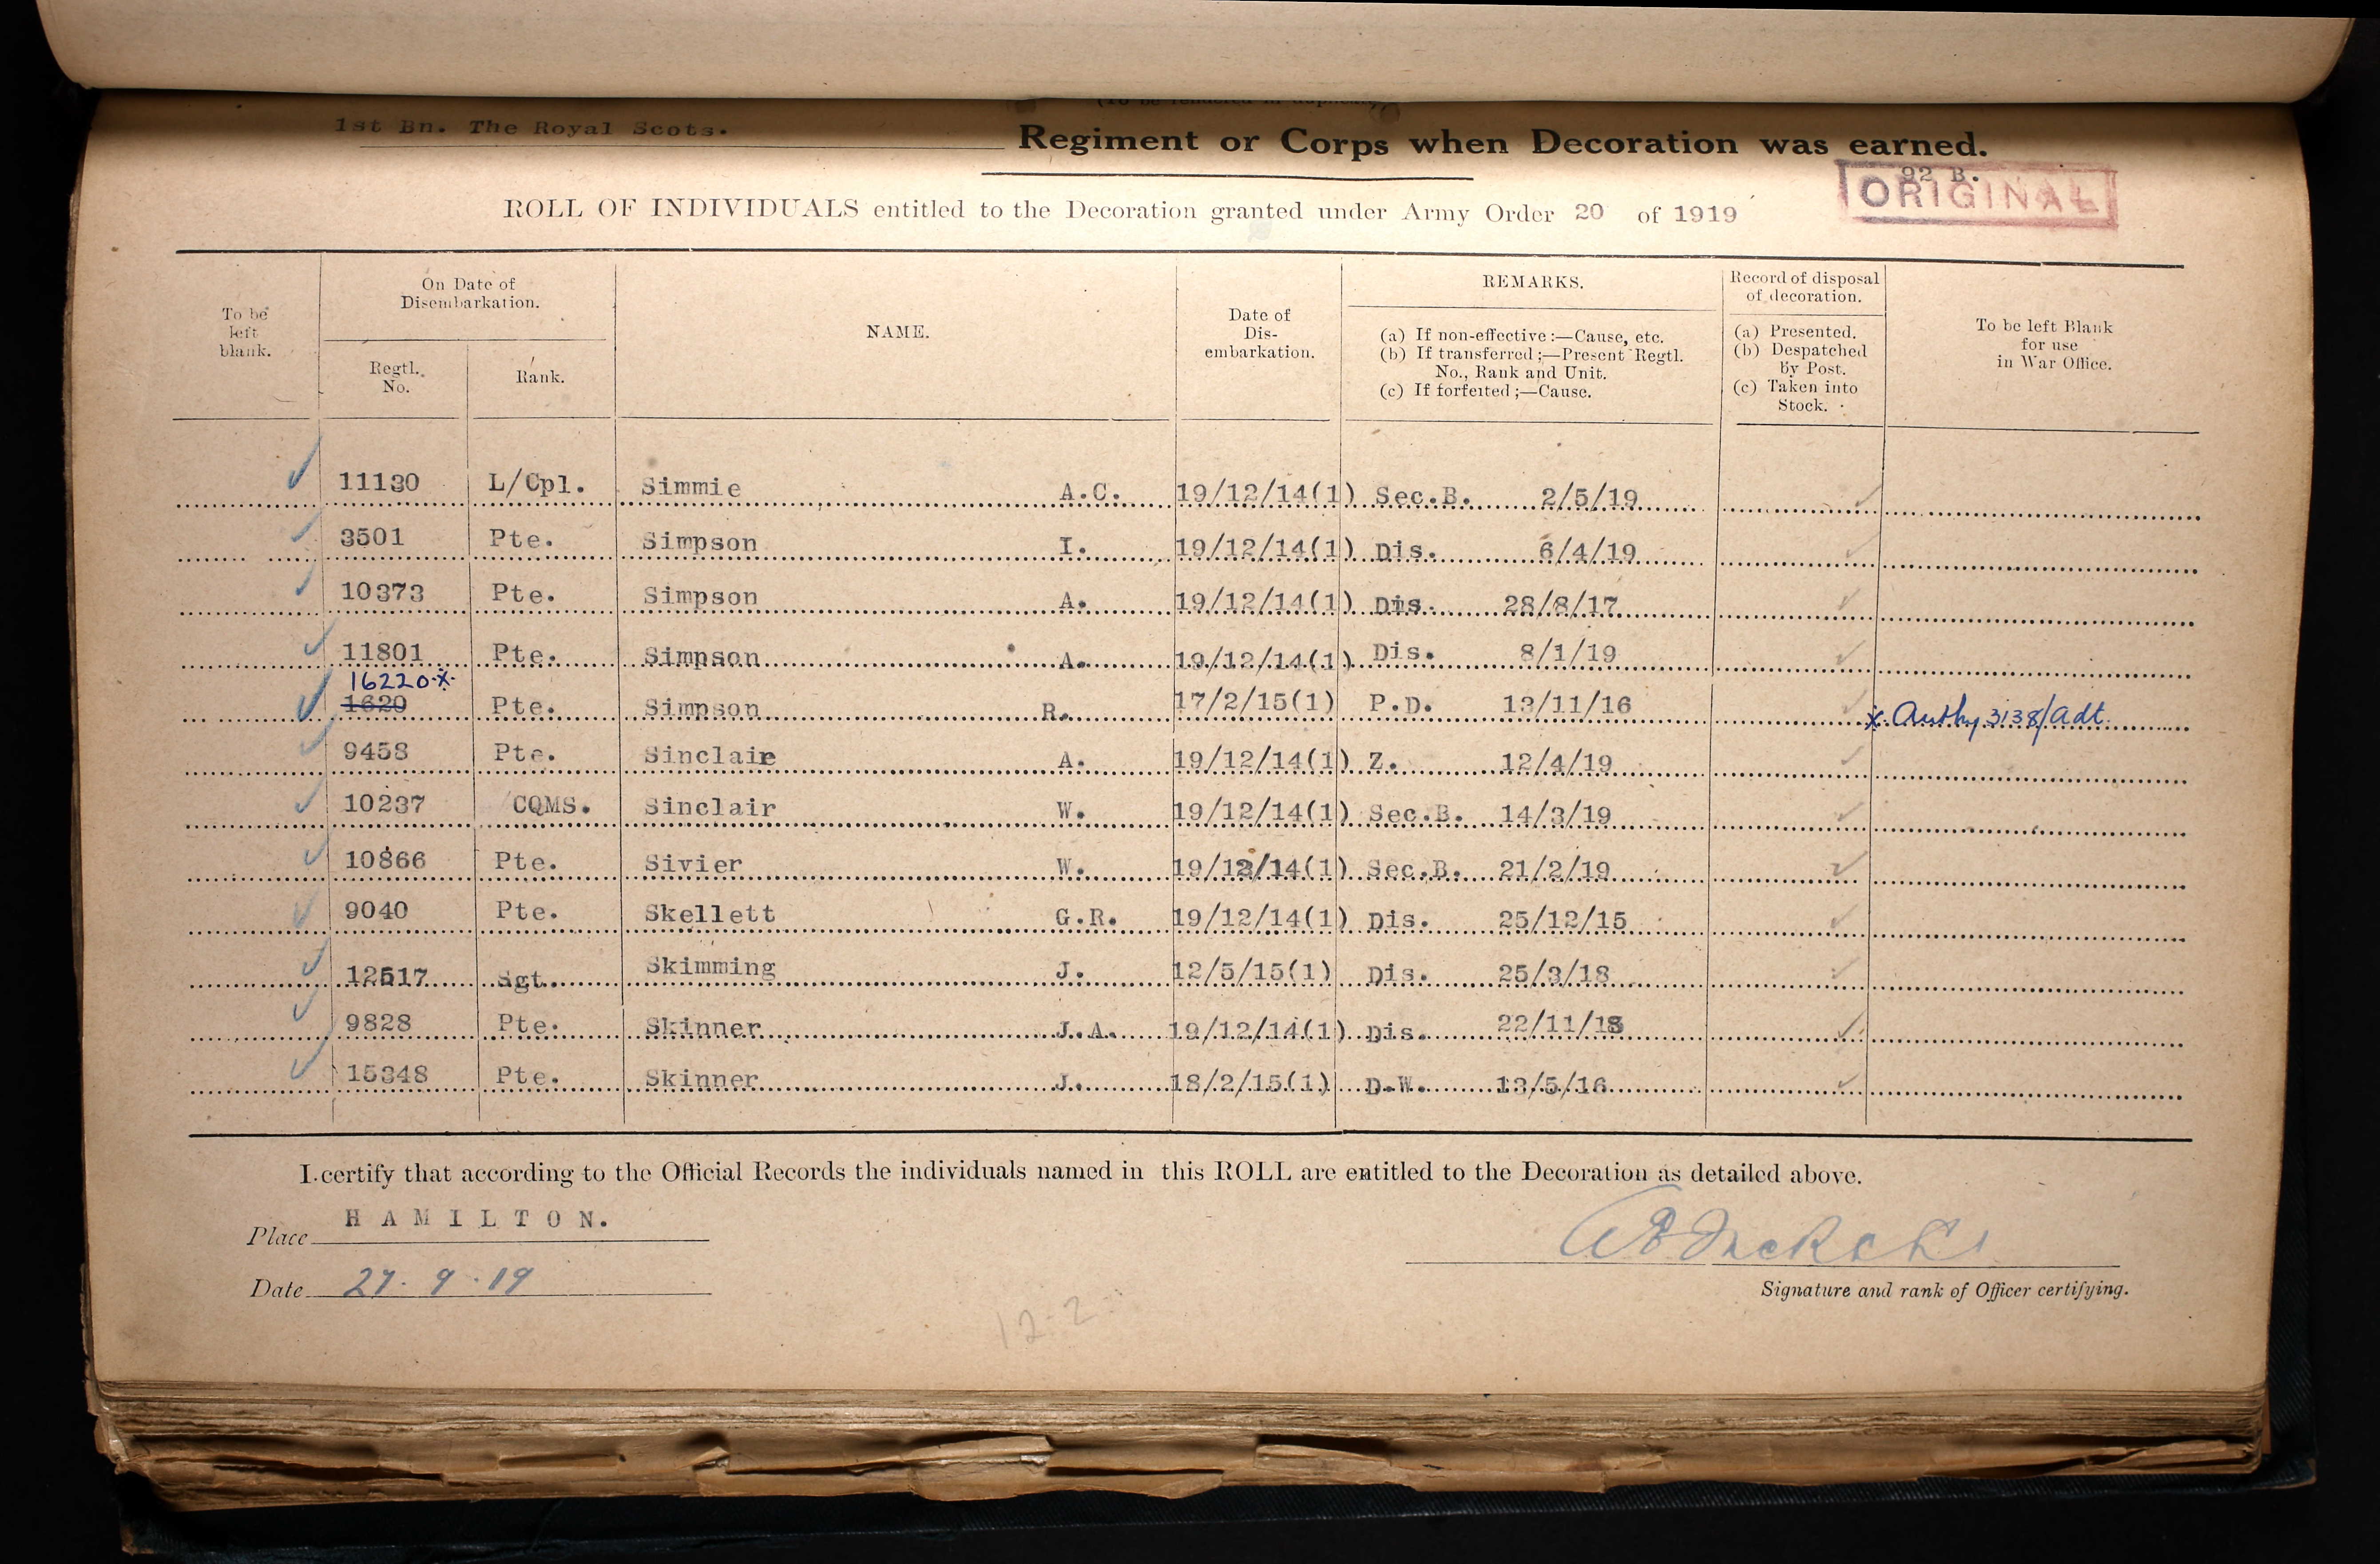 1st Bn. The Royal Scots. Regiment or Corps when Decoration was earned.
92 B.
ORIGINAL
ROLL OF INDIVIDUALS entitled to the Decoration granted under Army Order 20 of 1919
To be left blank.
On Date of Disembarkation.
Regtl. No.
Rank.
NAME.
Date of Dis-embarkation.
REMARKS.
(a) If non-effective :—Cause, etc.
(b) If transferred ;—Present Regtl. No., Rank and Unit.
(c) If forfeited ;—Cause.
Record of disposal of decoration.
(a) Presented.
(b) Despatched by Post.
(c) Taken into Stock.
To be left Blank for use in War Office.
11130 L/Cpl. Simmie A.C. 19/12/14(1) Sec.B. 2/5/19
3501 Pte. Simpson I. 19/12/14(1) Dis. 6/4/19
10373 Pte. Simpson A. 19/12/14(1) Dis. 28/8/17
11801 Pte. Simpson A. 19/12/14(1) Dis. 8/1/19
16220 x
1620 Pte. Simpson R. 17/2/15(1) P.D. 13/11/16 x Authy 3138/Adt.
9458 Pte. Sinclair A. 19/12/14(1) Z. 12/4/19
10237 CQMS. Sinclair W. 19/12/14(1) Sec.B. 14/3/19
10866 Pte. Sivier W. 19/12/14(1) Sec.B. 21/2/19
9040 Pte. Skellett G.R. 19/12/14(1) Dis. 25/12/15
12517 Sgt. Skimming J. 12/5/15(1) Dis. 25/3/18
9828 Pte. Skinner J.A. 19/12/14(1) Dis. 22/11/18
15348 Pte. Skinner J. 18/2/15(1) D.W. 13/5/16
I certify that according to the Official Records the individuals named in this ROLL are entitled to the Decoration as detailed above.
Place HAMILTON.
Date 27.9.19
Signature and rank of Officer certifying.
12-2